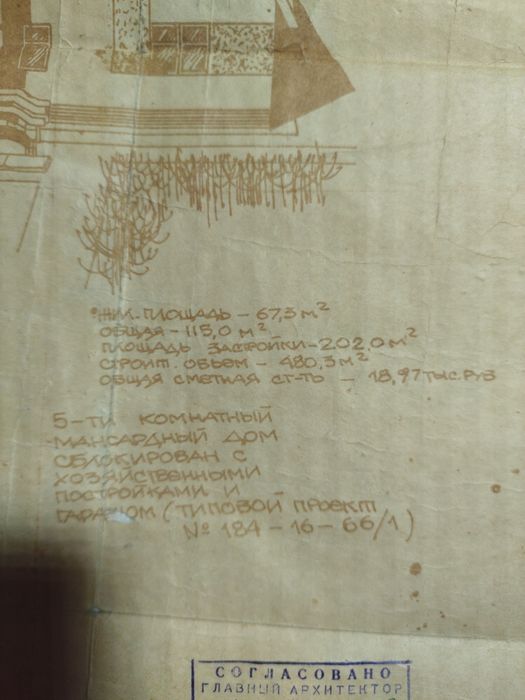 ЖИЛ. ПЛОЩАДЬ – 67,3 м²
ОБЩАЯ – 115,0 м²
ПЛОЩАДЬ ЗАСТРОЙКИ – 202,0 м²
СТРОИТ. ОБЪЕМ – 480,3 м³
ОБЩАЯ СМЕТНАЯ СТ-ТЬ – 18,97 ТЫС. РУБ
5-ТИ КОМНАТНЫЙ
МАНСАРДНЫЙ ДОМ
СБЛОКИРОВАН С
ХОЗЯЙСТВЕННЫМИ
ПОСТРОЙКАМИ И
ГАРАЖОМ (ТИПОВОЙ ПРОЕКТ
№ 184 – 16 – 66/1)
СОГЛАСОВАНО
ГЛАВНЫЙ АРХИТЕКТОР